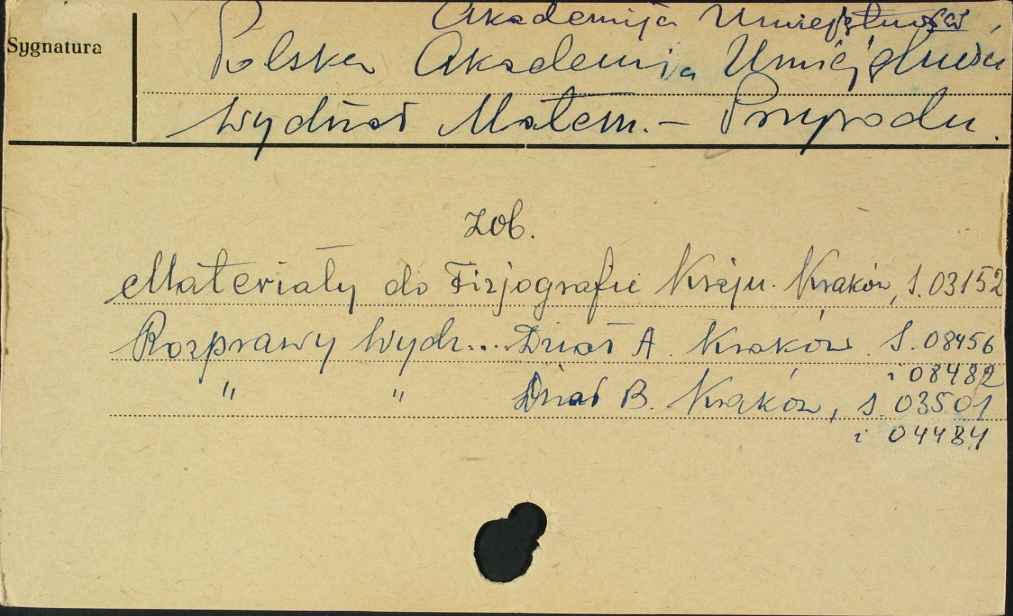 Akademija Umiejętności,
Sygnatura
Polska Akademia Umiejętności
Wydział Matem. – Przyrodn.
zob.
Materiały do Fizjografii Kraju. Kraków, S. 03152
Rozprawy Wydz... Dział A. Kraków. S. 08456
i 08482
" " Dział B. Kraków, S. 03501
i 04484